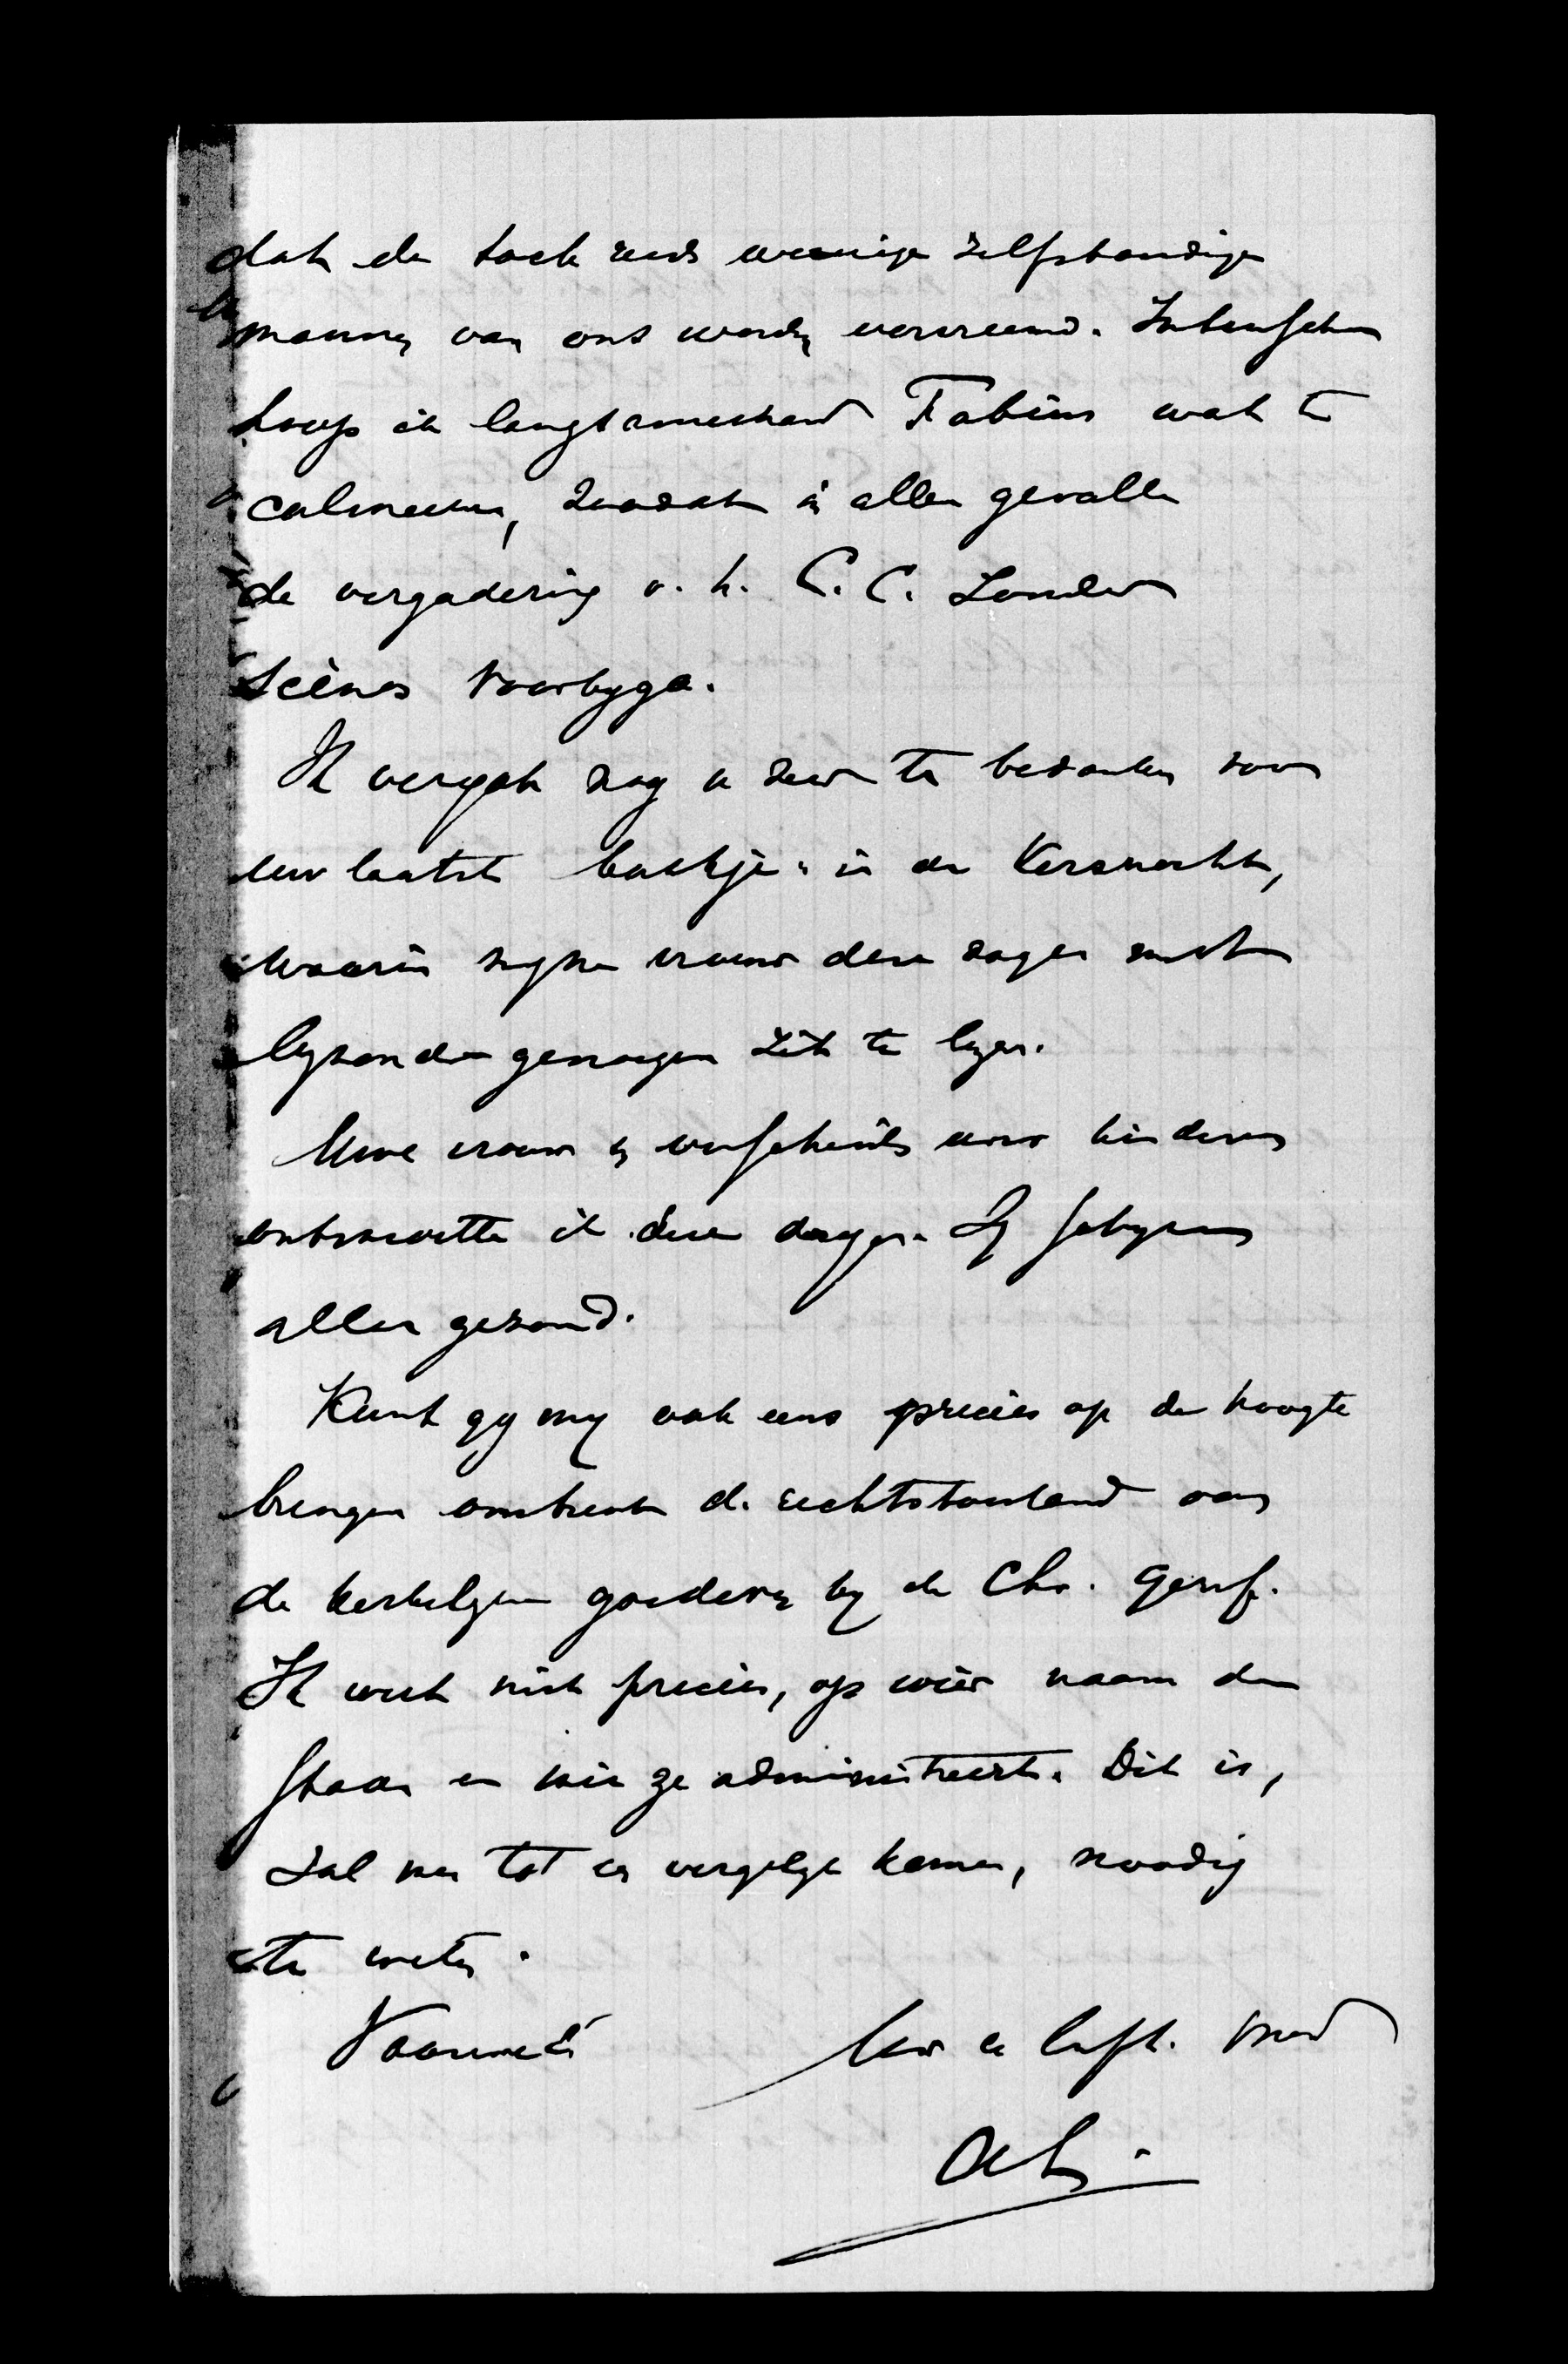 dat de toch reeds weinige zelfstandige
mannen van ons worden vervreemd. Intusschen
hoop ik langzamerhand Fabius wat te
calmeeren, zoodat in allen gevalle
de vergadering v. h. C. C. zonder
scènes voorbyga.
Ik vergat nog u zeer te bedanken voor
uw laatste boekje: in de Kersnacht,
waarin myne vrouw deze dagen met
byzonder genoegen zit te lezen.
Uwe vrouw en verscheidene uwer kinderen
ontmoette ik deze dagen. Zy schynen
allen gezond.
Kunt gy my ook eens precies op de hoogte
brengen omtrent de rechtstoestand van
de kerkelyke goederen by de Chr. Geref.
Ik weet niet precies, op wier naam die
staan en wie ze administreert. Dit is,
zal men tot een vergelyk komen, noodig
te weten.
Vaarwel! Uw u liefh.